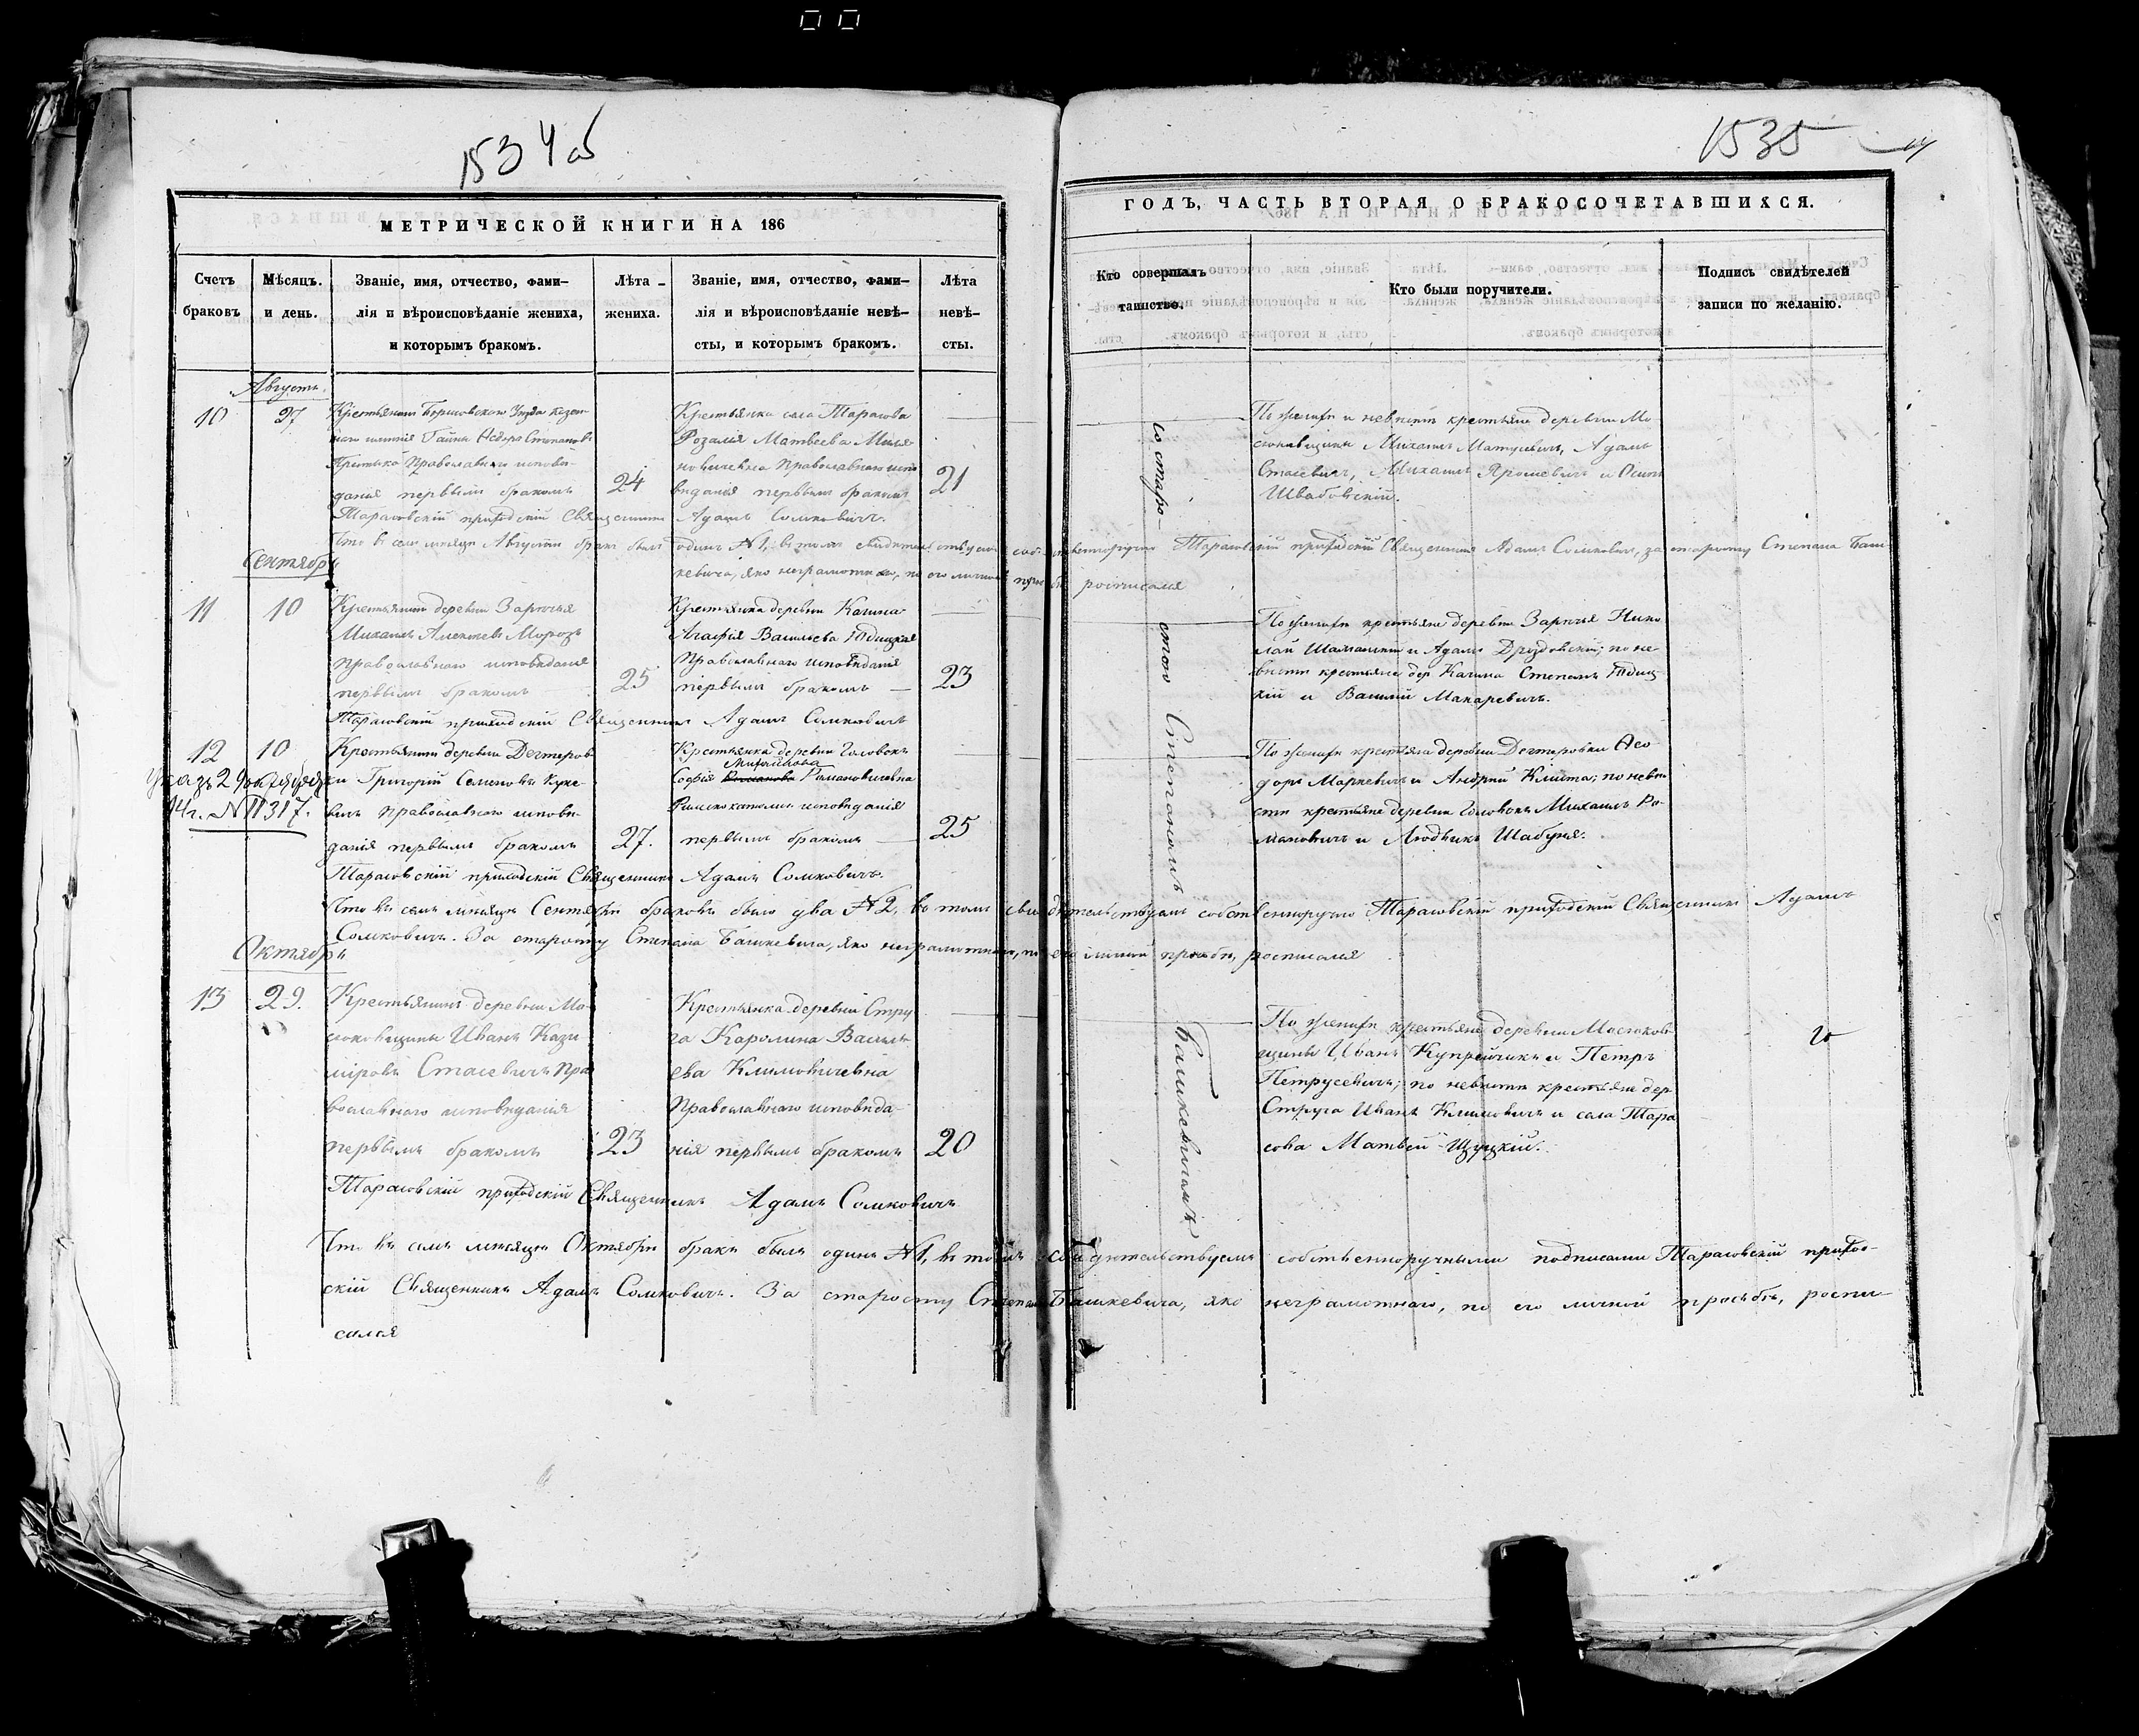 1534 об
МЕТРИЧЕСКОЙ КНИГИ НА 186
Счетъ браковъ
Мѣсяцъ. и день.
Званіе, имя, отчество, фами-
лія и вѣроисповѣданіе жениха,
и которымъ бракомъ.
Лѣта
жениха.
Званіе, имя, отчество, фами-
лія и вѣроисповѣданіе невѣ-
сты, и которымъ бракомъ.
Лѣта
невѣ-
сты.
Августъ.
10
27
Крестьянинъ Борисовскаго Уѣзда казен
наго имѣнія Гайны Ѳедоръ Степановъ
Православнаго исповѣ-
данія первымъ бракомъ
24
Крестьянка села Тарасова
Розалія Матвеева
Православнаго испо
вѣданія первымъ бракомъ
21
Тарасовскій приходскій Священникъ Адамъ Сомковичъ.
Что въ семъ мѣсяцѣ Августѣ бракъ былъ одинъ №1, въ томъ свидѣтельствуемъ собственноручно Тарасовскій приходскій Священникъ Адамъ Сомковичъ, за старосту Степана Баш
кевича, яко неграмотнаго, по его личной просьбѣ росписался
Сентябрь
11
10
Крестьянинъ деревни Зарѣчья
Михаилъ Алексѣевъ Морозъ
Православнаго исповѣданія
первымъ бракомъ
25
Крестьянка деревни Качина
Агафія Васильева Юдицкая
Православнаго исповѣданія
первымъ бракомъ
23
Тарасовскій приходскій Священникъ Адамъ Сомковичъ
12
10
Указъ 29 октября
14г. №11317.
Крестьянинъ деревни Дегтеров
ки Григорій Семеновъ Куке
вичъ Православнаго исповѣ-
данія первымъ бракомъ
27.
Крестьянка деревни Головокъ
Михайлова
Софія Романова Романовичевна
Римскокатолич исповѣданія
первымъ бракомъ
25
Тарасовскій приходскій Священникъ Адамъ Сомковичъ.
Что въ семъ мѣсяцѣ Сентябрѣ браковъ было два №2, въ томъ свидѣтельствуемъ собственноручно Тарасовскій приходскій Священникъ Адамъ
Сомковичъ. За старосту Степана Башкевича, яко неграмотнаго, по его личной просьбѣ, росписался
Октябрь
13
29.
Крестьянинъ деревни Мо
Иванъ Кази
міровъ Стасевичъ Пра
вославнаго исповѣданія
первымъ бракомъ
23
Крестьянка деревни Стру
га Каролина Василь
ева Климовичевна
Православнаго исповѣда-
нія первымъ бракомъ
20
Тарасовскій приходскій Священникъ Адамъ Сомковичъ
Что въ семъ мѣсяцѣ Октябрѣ бракъ былъ одинъ №1, въ томъ свидѣтельствуемъ собственноручными подписами Тарасовскій приход-
скій Священникъ Адамъ Сомковичъ. За старосту Степана Башкевича, яко неграмотнаго, по его личной просьбѣ, роспи-
сался
1535
ГОДЪ, ЧАСТЬ ВТОРАЯ О БРАКОСОЧЕТАВШИХСЯ.
Кто совершалъ
таинство.
Кто были поручители.
Подпись свидѣтелей
записи по желанію.
со старо-
стою Степаномъ Башкевичемъ
По женихѣ и невѣстѣ крестьяне деревни Мо
Михаилъ Матусевичъ, Адамъ
Стасевичъ, Михаилъ Ярошевичъ и Осипъ
Швабовскій.
По женихѣ крестьяне деревни Зарѣчья Нико
лай и Адамъ Дроздовскій; по не-
вѣстѣ крестьяне дер Качина Степанъ Юдиц
кій и Василій Макаревичъ.
По женихѣ крестьяне деревни Дегтеровки Ѳео
доръ Маркевичъ и Андрей; по невѣ
стѣ крестьяне деревни Головокъ Михаилъ Ро
мановичъ и Людвикъ Шабуня.
По женихѣ крестьяне деревни
щины Иванъ Купрейчикъ и Петръ
Петрусевичъ; по невѣстѣ крестьяне дер
Струга Иванъ Климовичъ и села Тара
сова Матвей Щуцкій.